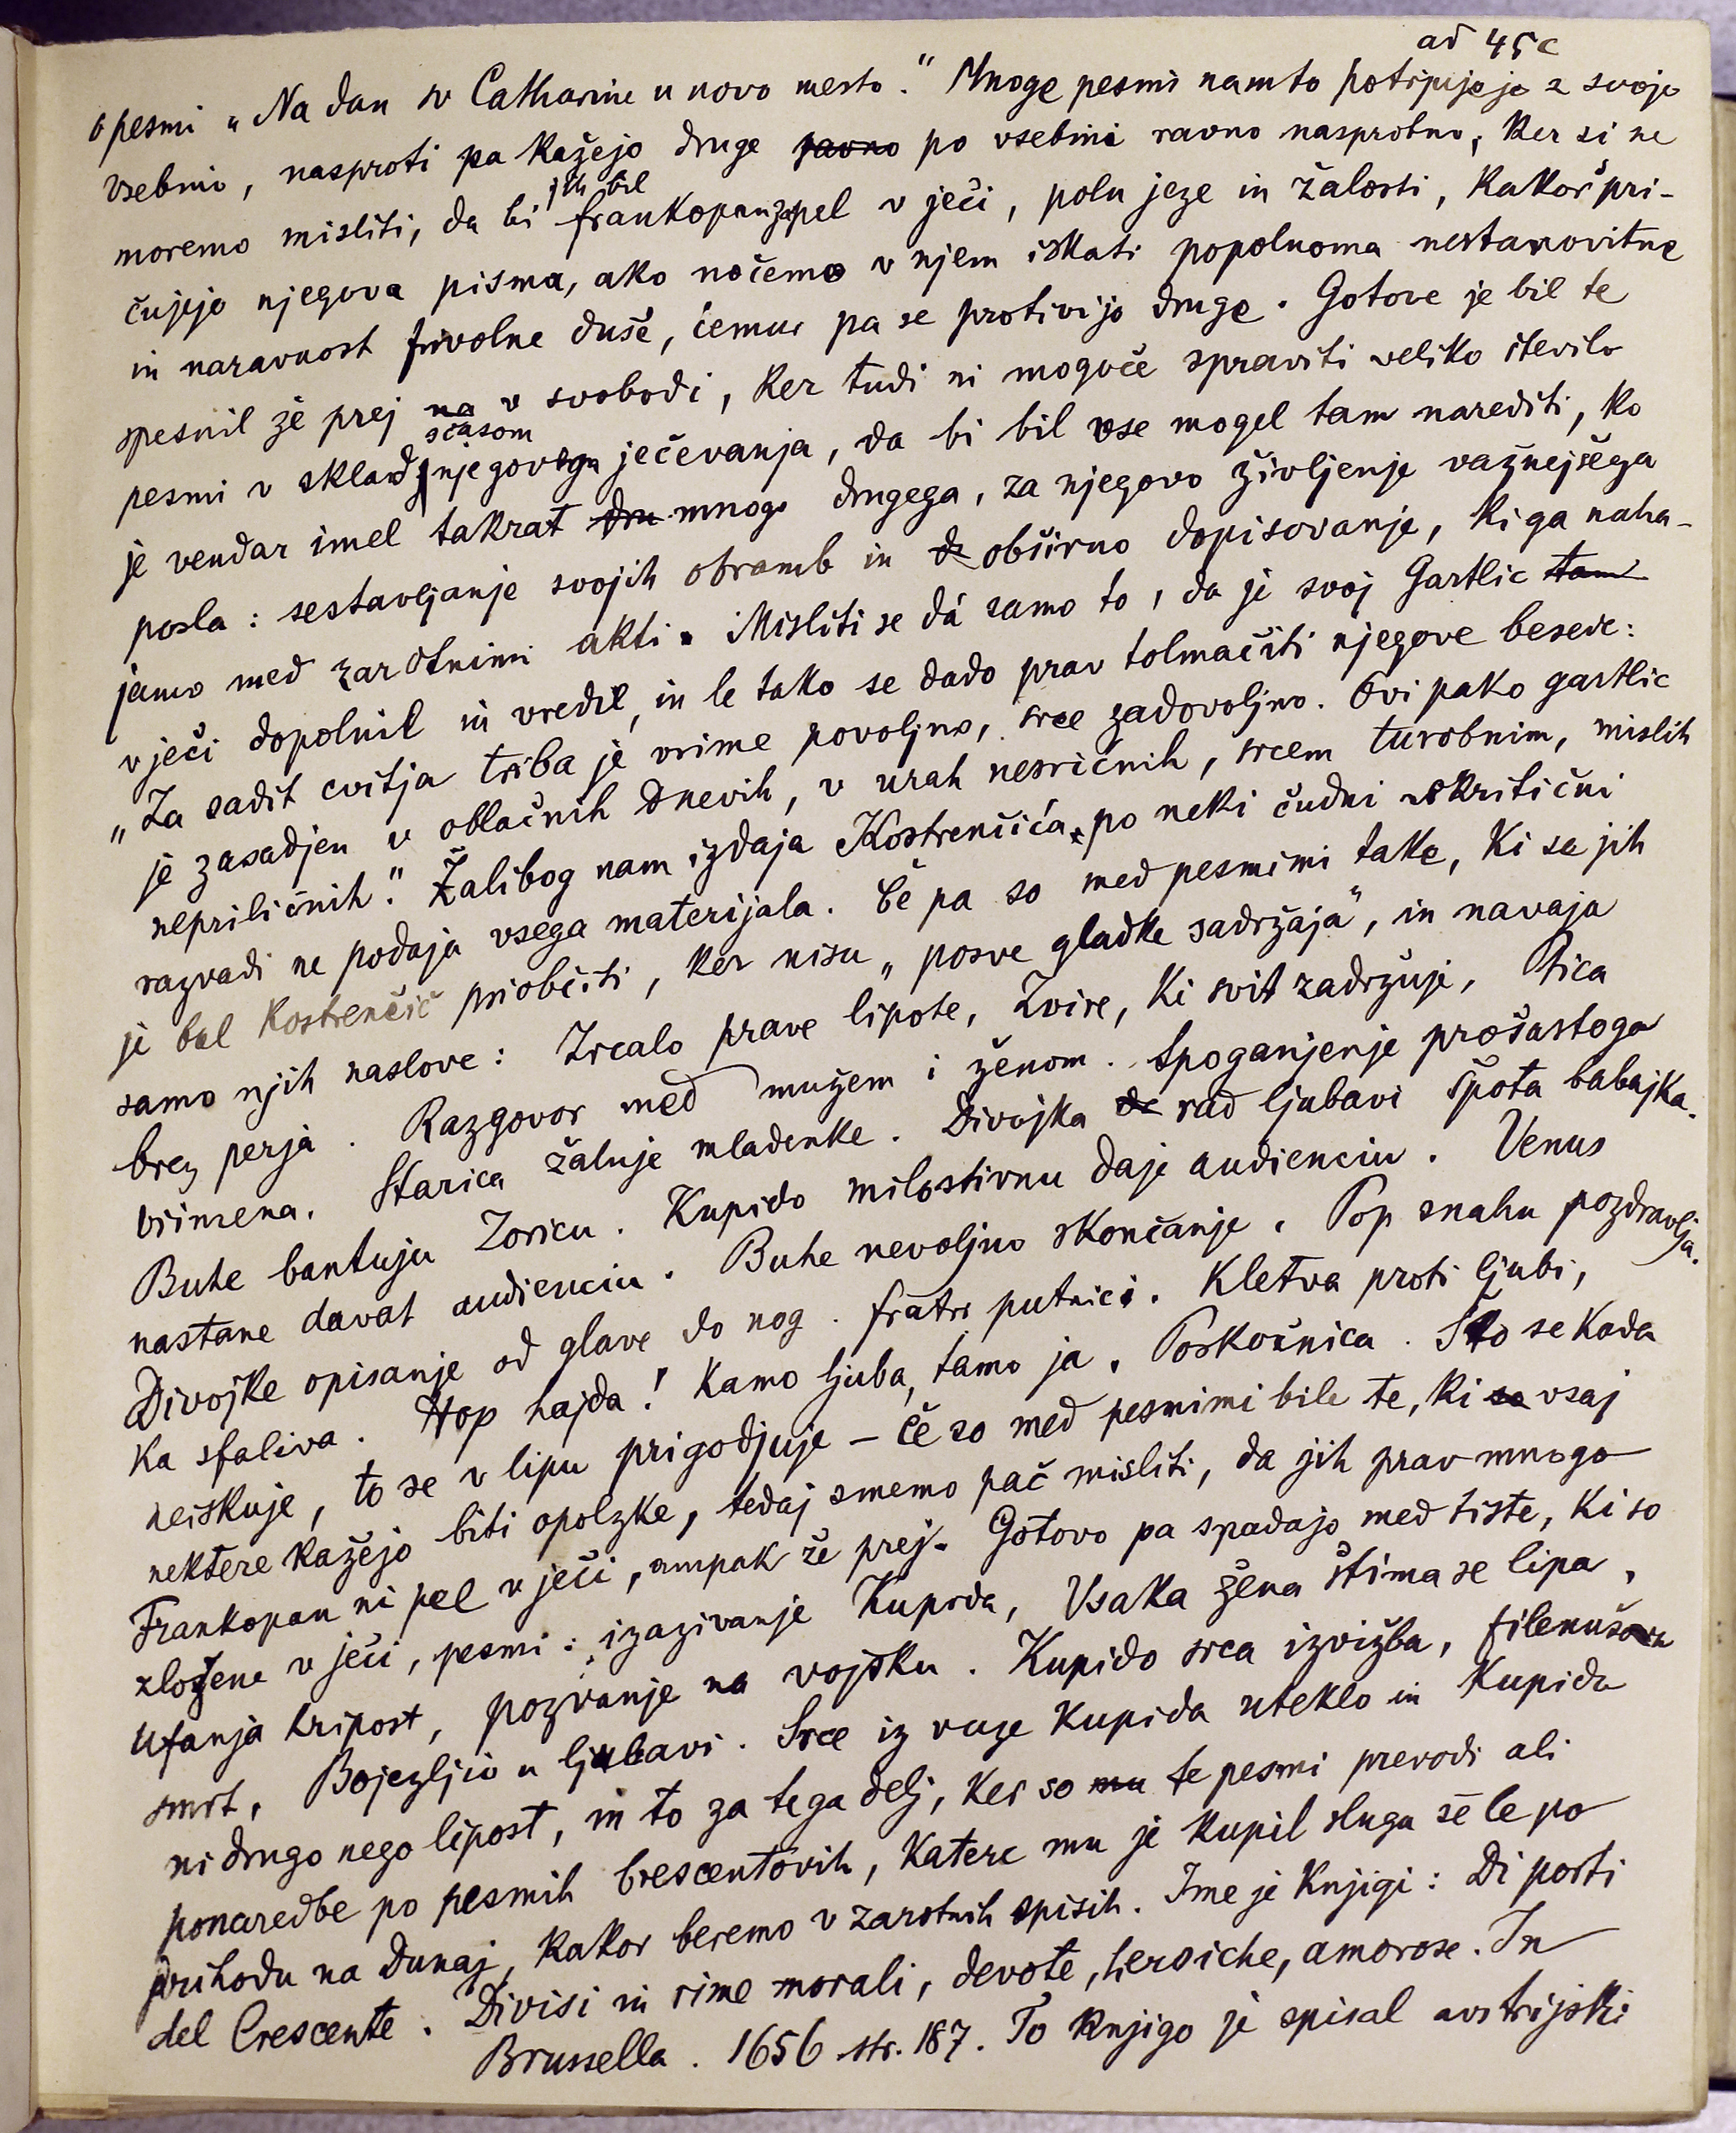 ad 45c
o pesmi „Na dan sv Catharine u novo mesto." Mnoge pesmi nam to potrjujejo z svojo
vsebino, nasproti pa kažejo druge ravno po vsebini ravno nasprotno, ker si ne
moremo misliti, da bi jih bil frankopan zapel v ječi, poln jeze in žalosti, kakor pri-
čujejo njegova pisma, ako nočemo v njem iskati popolnoma nestanovitne
in naravnost frivolne duše, čemur pa se protivijo druge. Gotove je bil te
spesnil že prej na v svobodi, ker tudi ni mogoče spraviti veliko število
pesmi v sklad sčasom njegovega ječevanja, da bi bil vse mogel tam narediti, ko
je vendar imel takrat dru mnogo drugega, za njegovo življenje važnejšega
posla: sestavljanje svojih obramb in obširno dopisovanje, ki ga naha-
jamo med zarotnimi akti. Misliti se dá samo to, da je svoj Gartlic tam
v ječi dopolnil in vredil, in le tako se dado prav tolmačiti njegove besede:
„Za sadit cvitja triba je vrime povoljno, srce zadovoljno. Ovi pako gartlic
je zasadjen v oblačnih dnevih, v urah nesričnih, srcem turobnim, mislih
nepriličnih." Žalibog nam izdaja Kostrenčića po neki čudni kritični
razvadi ne podaja vsega materijala. Če pa so med pesmimi take, ki se jih
je bal Kostrenčič priobčiti, ker nisu „posve gladke sadržaja", in navaja
samo njih naslove: Zrcalo prave lipote, Zvire, ki svit zadržuje, Ptica
brez perja. Razgovor med mužem i ženom. Spoganjenje prošastoga
vrimena. Starica žaluje mladenke. Divojka de rad ljubavi špota babajka.
Buhe bantuju Zoricu. Kupido milostivnu daje audienciu. Venus
nastane davat audienciu. Buhe nevoljno skončanje. Pop snahu pozdravlja.
Divojke opisanje od glave do nog. fratri putnici. Kletva proti ljubi,
ka sfaliva. Hop hajda! Kamo ljuba, tamo ja. Poskočnica. Što se kada
neiskuje, to se v lipu prigodjuje – če so med pesmimi bile te, ki so vsaj
nektere kažejo biti opolzke, tedaj smemo pač misliti, da jih prav mnogo
Frankopan ni pel v ječi, ampak že prej. Gotovo pa spadajo med tiste, ki so
zložene v ječi, pesmi: izazivanje Kupida, Vsaka žena štima se lipa,
Ufanja kripost, pozvanje na vojsku. Kupido srca izvižba,
smrt, Bojezljiv u ljubavi. Srce iz ruze Kupida uteklo in Kupida
ni drugo nego lipost, in to za tega delj, ker so mu te pesmi prevodi ali
ponaredbe po pesmih Crescentovih, katere mu je kupil sluga še le po
prihodu na Dunaj, kakor beremo v zarotnih spisih. Ime je knjigi: Di porti
del Crescente. Divisi in rime morali, devote, heroiche, amorose. In
Brussella. 1656 str. 187. To knjigo je spisal avstrijski